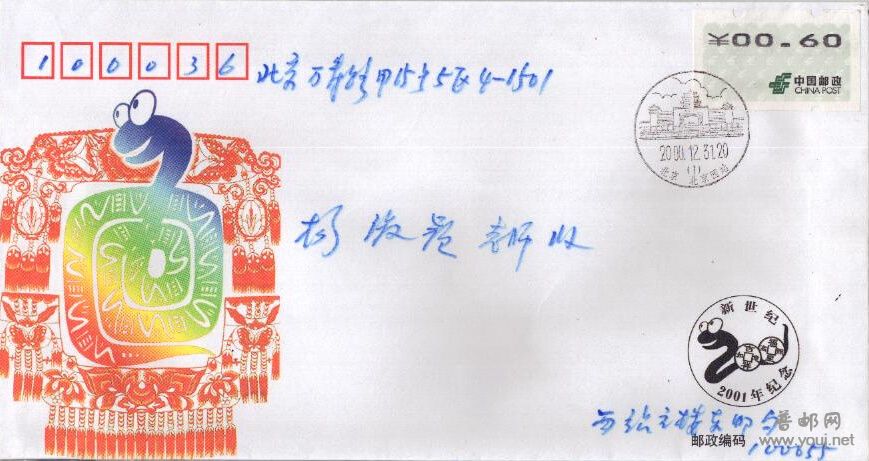 100036
北京万寿路甲15号5区4-1501
¥00.60
中国邮政
CHINA POST
2000.12.31.20
(1)
北京 北京西站
杨 老师 收
新世纪
2001年纪念
西站主楼东邮局
邮政编码 100055
普邮网
www.youj.net